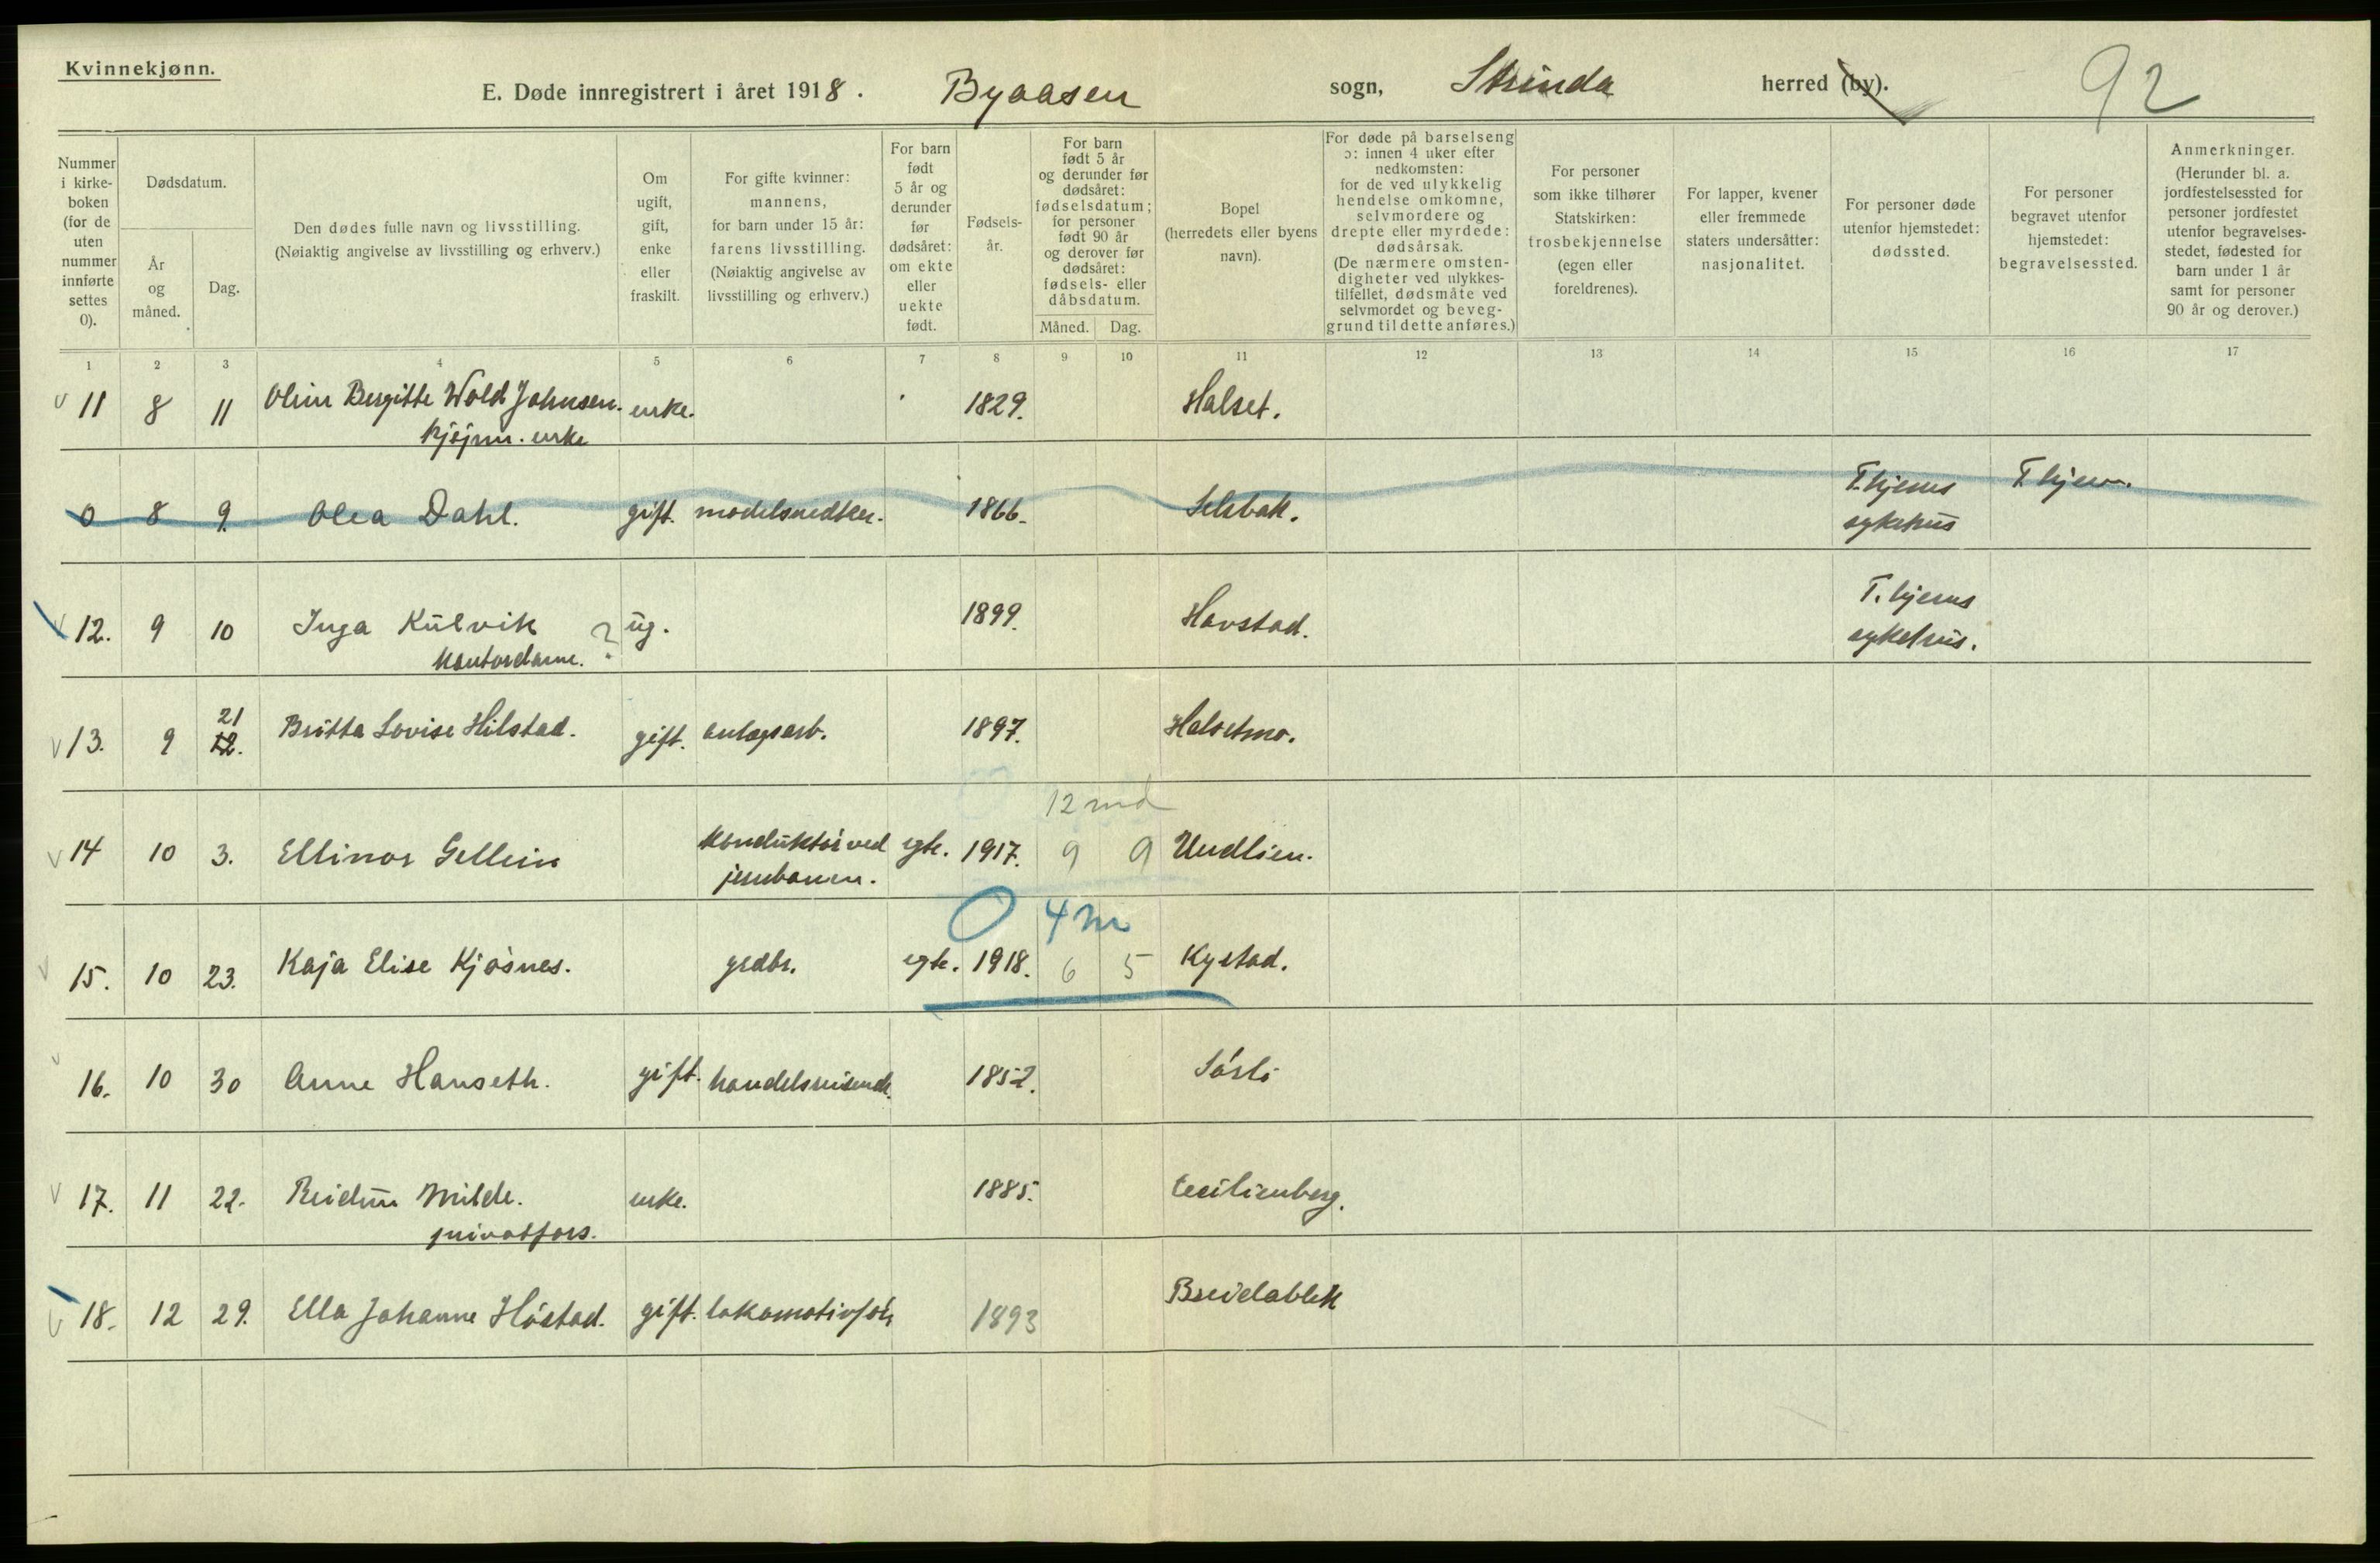 Kvinnekjønn.
E. Døde innregistrert i året 1918. Byaasen sogn, Strinda herred (by). 92
Nummer i kirke- boken (for de uten nummer innførte settes 0).
Dødsdatum.
År og måned.
Dag.
Den dødes fulle navn og livsstilling.
(Nøiaktig angivelse av livsstilling og erhverv.)
Om ugift, gift, enke eller fraskilt.
For gifte kvinner: mannens, for barn under 15 år: farens livsstilling. (Nøiaktig angivelse av livsstilling og erhverv.)
For barn født 5 år og derunder før dødsåret: om ekte eller uekte født.
Fødsels- år.
For barn født 5 år og derunder før dødsåret: fødselsdatum; for personer født 90 år og derover før dødsåret: fødsels- eller dåbsdatum.
Måned. Dag.
Bopel (herredets eller byens navn).
For døde på barselseng ɔ: innen 4 uker efter nedkomsten: for de ved ulykkelig hendelse omkomne, selvmordere og drepte eller myrdede: dødsårsak. (De nærmere omsten- digheter ved ulykkes- tilfellet, dødsmåte ved selvmordet og beveg- grund til dette anføres.)
For personer som ikke tilhører Statskirken: trosbekjennelse (egen eller foreldrenes).
For lapper, kvener eller fremmede staters undersåtter: nasjonalitet.
For personer døde utenfor hjemstedet: dødssted.
For personer begravet utenfor hjemstedet: begravelsessted.
Anmerkninger. (Herunder bl. a. jordfestelsessted for personer jordfestet utenfor begravelses- stedet, fødested for barn under 1 år samt for personer 90 år og derover.)
1 2 3 4 5 6 7 8 9 10 11 12 13 14 15 16 17
v 11 8 11 Olin Bergitte Wold Johnsen. enke. 1829. Halset.
enke
0 8 9. Olea Dahl. gift. modelsnedker. 1866. Selsbak. T.hjems T.hjem.
sykehus
v 12. 9 10 Inga Kulvik ? ug. 1899. Havstad. T.hjems
kontordame. sykehus.
v 13. 9 21 12. Britta Lovise Hilstad. gift. anlegsarb. 1897. Halsetmo.
12 md
v 14 10 3. Ellinor Gellein konduktør ved egte. 1917. 9 9 Undlien.
jernbanen.
0 4 m
v 15. 10 23. Kaja Elise Kjøsnes. grdbr. egte. 1918. 6 5 Kystad.
v 16. 10 30 Anne Hanseth. gift. handelsreisende. 1852. Sørli
v 17. 11 22. Reidun Milde. enke. 1885. Cecilienberg.
privatfors.
v 18. 12 29. Ella Johanne Høstad. gift. lokomotivfør. 1893 Breidablik